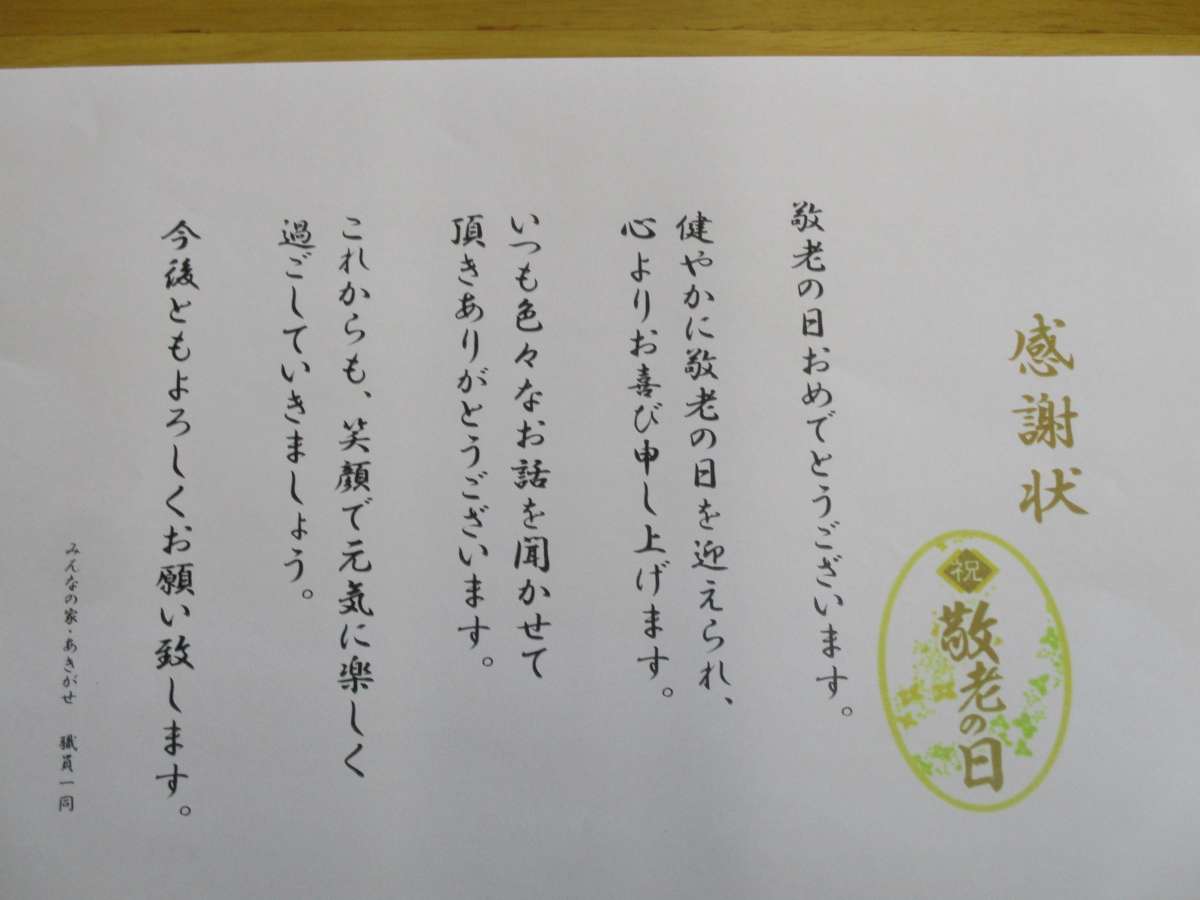 感謝状
祝
敬老の日
敬老の日おめでとうございます。
健やかに敬老の日を迎えられ、
心よりお喜び申し上げます。
いつも色々なお話を聞かせて
頂きありがとうございます。
これからも、笑顔で元気に楽しく
過ごしていきましょう。
今後ともよろしくお願い致します。
みんなの家・あきがせ　職員一同